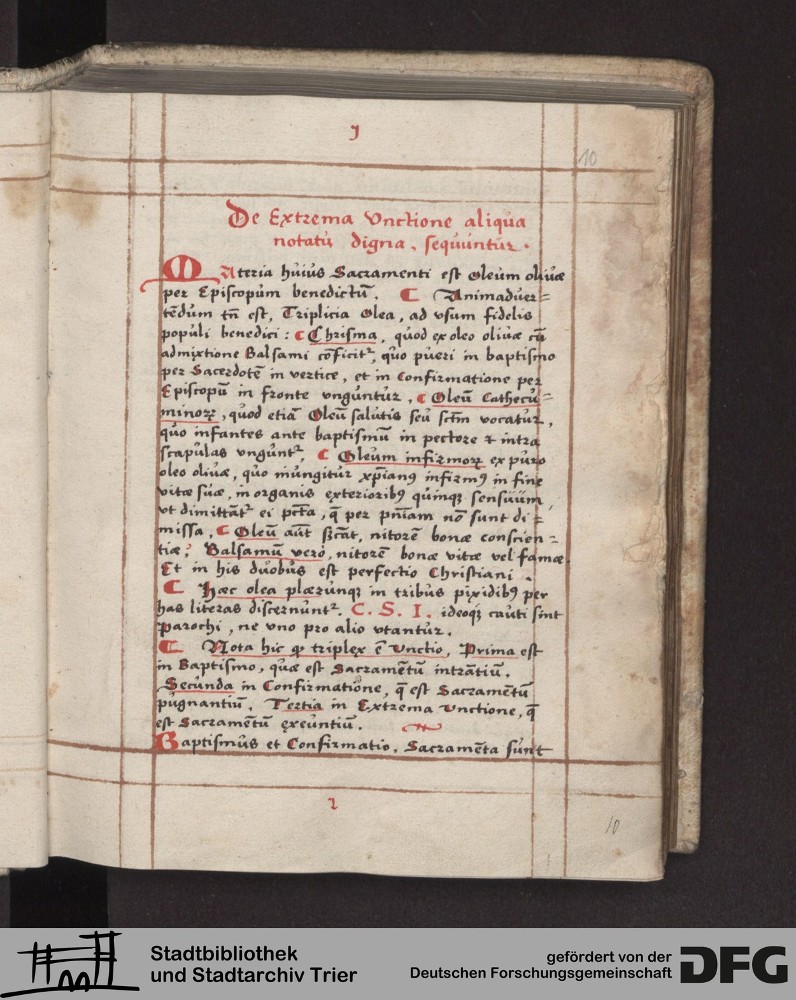 J
10
De Extrema Vnctione aliqua
notatu digna, sequuntur.
MAteria huius Sacramenti est Oleum oliuæ
per Episcopum benedictū. Animaduer=
tēdum tn̄ est, Triplicia Olea, ad vsum fidelis
populi benedici: Chrisma, quod ex oleo oliuæ cū
admixtione Balsami cōficit², quo pueri in baptismo
per Sacerdotē in vertice, et in Confirmatione per
Episcopū in fronte vnguntur, Oleū Cathecu=
minorꝝ, quod etiā Oleū salutis seu sctm̄ vocatur,
quo infantes ante baptismū in pectore & intra
scapulas vngunt². Oleum infirmorꝝ ex puro
oleo oliuæ, quo inungitur xp̄ianꝰ infirmꝰ in fine
vitæ suæ, in organis exterioribꝰ quinqꝫ sensuum,
vt dimittāt² ei pctā, q̄ per pn̄iam nō sunt di=
missa. Oleū aūt sīcat, nitorē bonæ conscien=
tiæ: Balsamū vero, nitorē bonæ vitæ vel famæ.
Et in his duobus est perfectio Christiani.
Hæc olea plærunqꝫ in tribus pixidibꝰ per
has literas discernunt². C. S. I. ideoqꝫ cauti sint
Parochi, ne vno pro alio vtantur.
Nota hic ꝙ triplex ē Vnctio, Prima est
in Baptismo, quæ est Sacramentū intrātiū.
Secunda in Confirmatione, q̄ est Sacramentū
pugnantiū. Tertia in Extrema vnctione, q̄
est Sacramentū exeuntiū.
Baptismus et Confirmatio, Sacramēta sunt
10
Stadtbibliothek
und Stadtarchiv Trier
gefördert von der
Deutschen Forschungsgemeinschaft
DFG